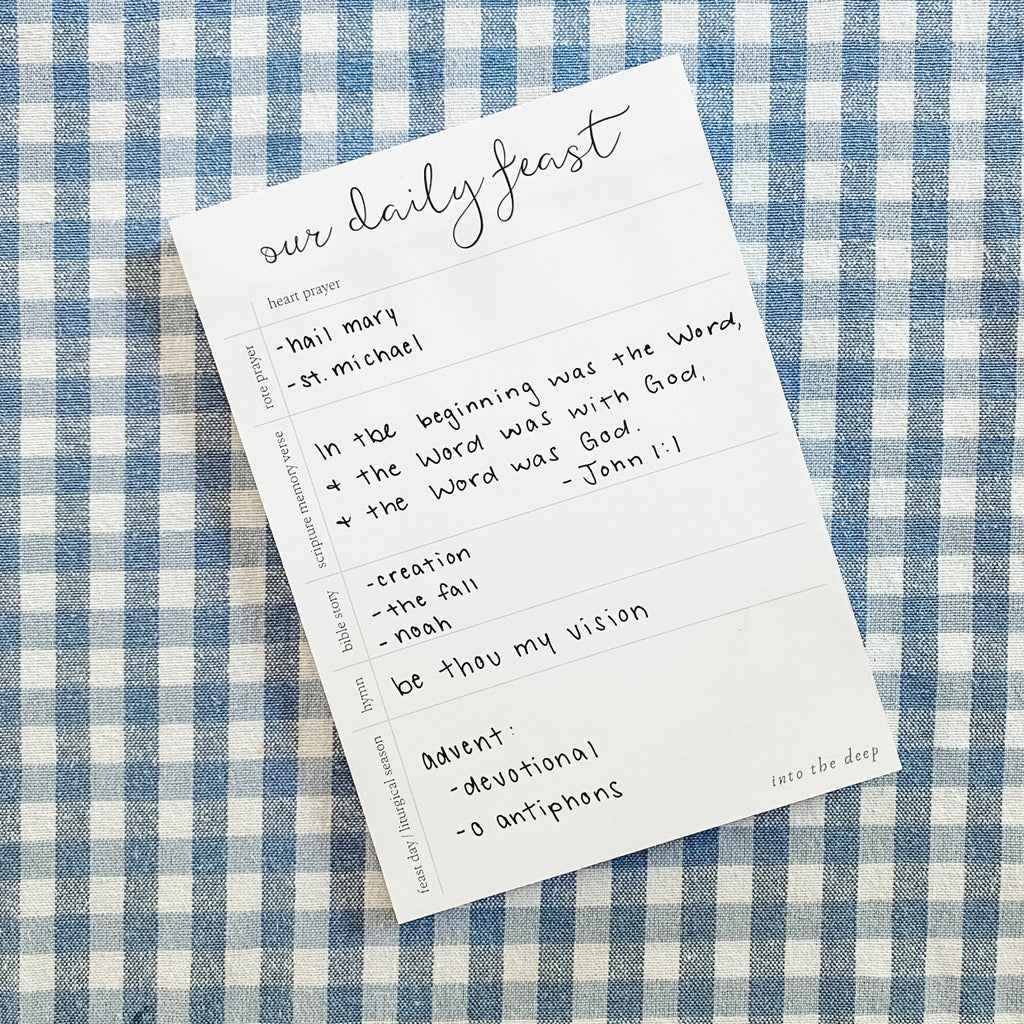 our daily feast
heart prayer
rote prayer
-hail mary
-st. michael
scripture memory verse
In the beginning was the Word,
+ the Word was with God,
+ the Word was God.
- John 1:1
bible story
-creation
-the fall
-noah
hymn
be thou my vision
feast day / liturgical season
advent:
-devotional
-o antiphons
into the deep